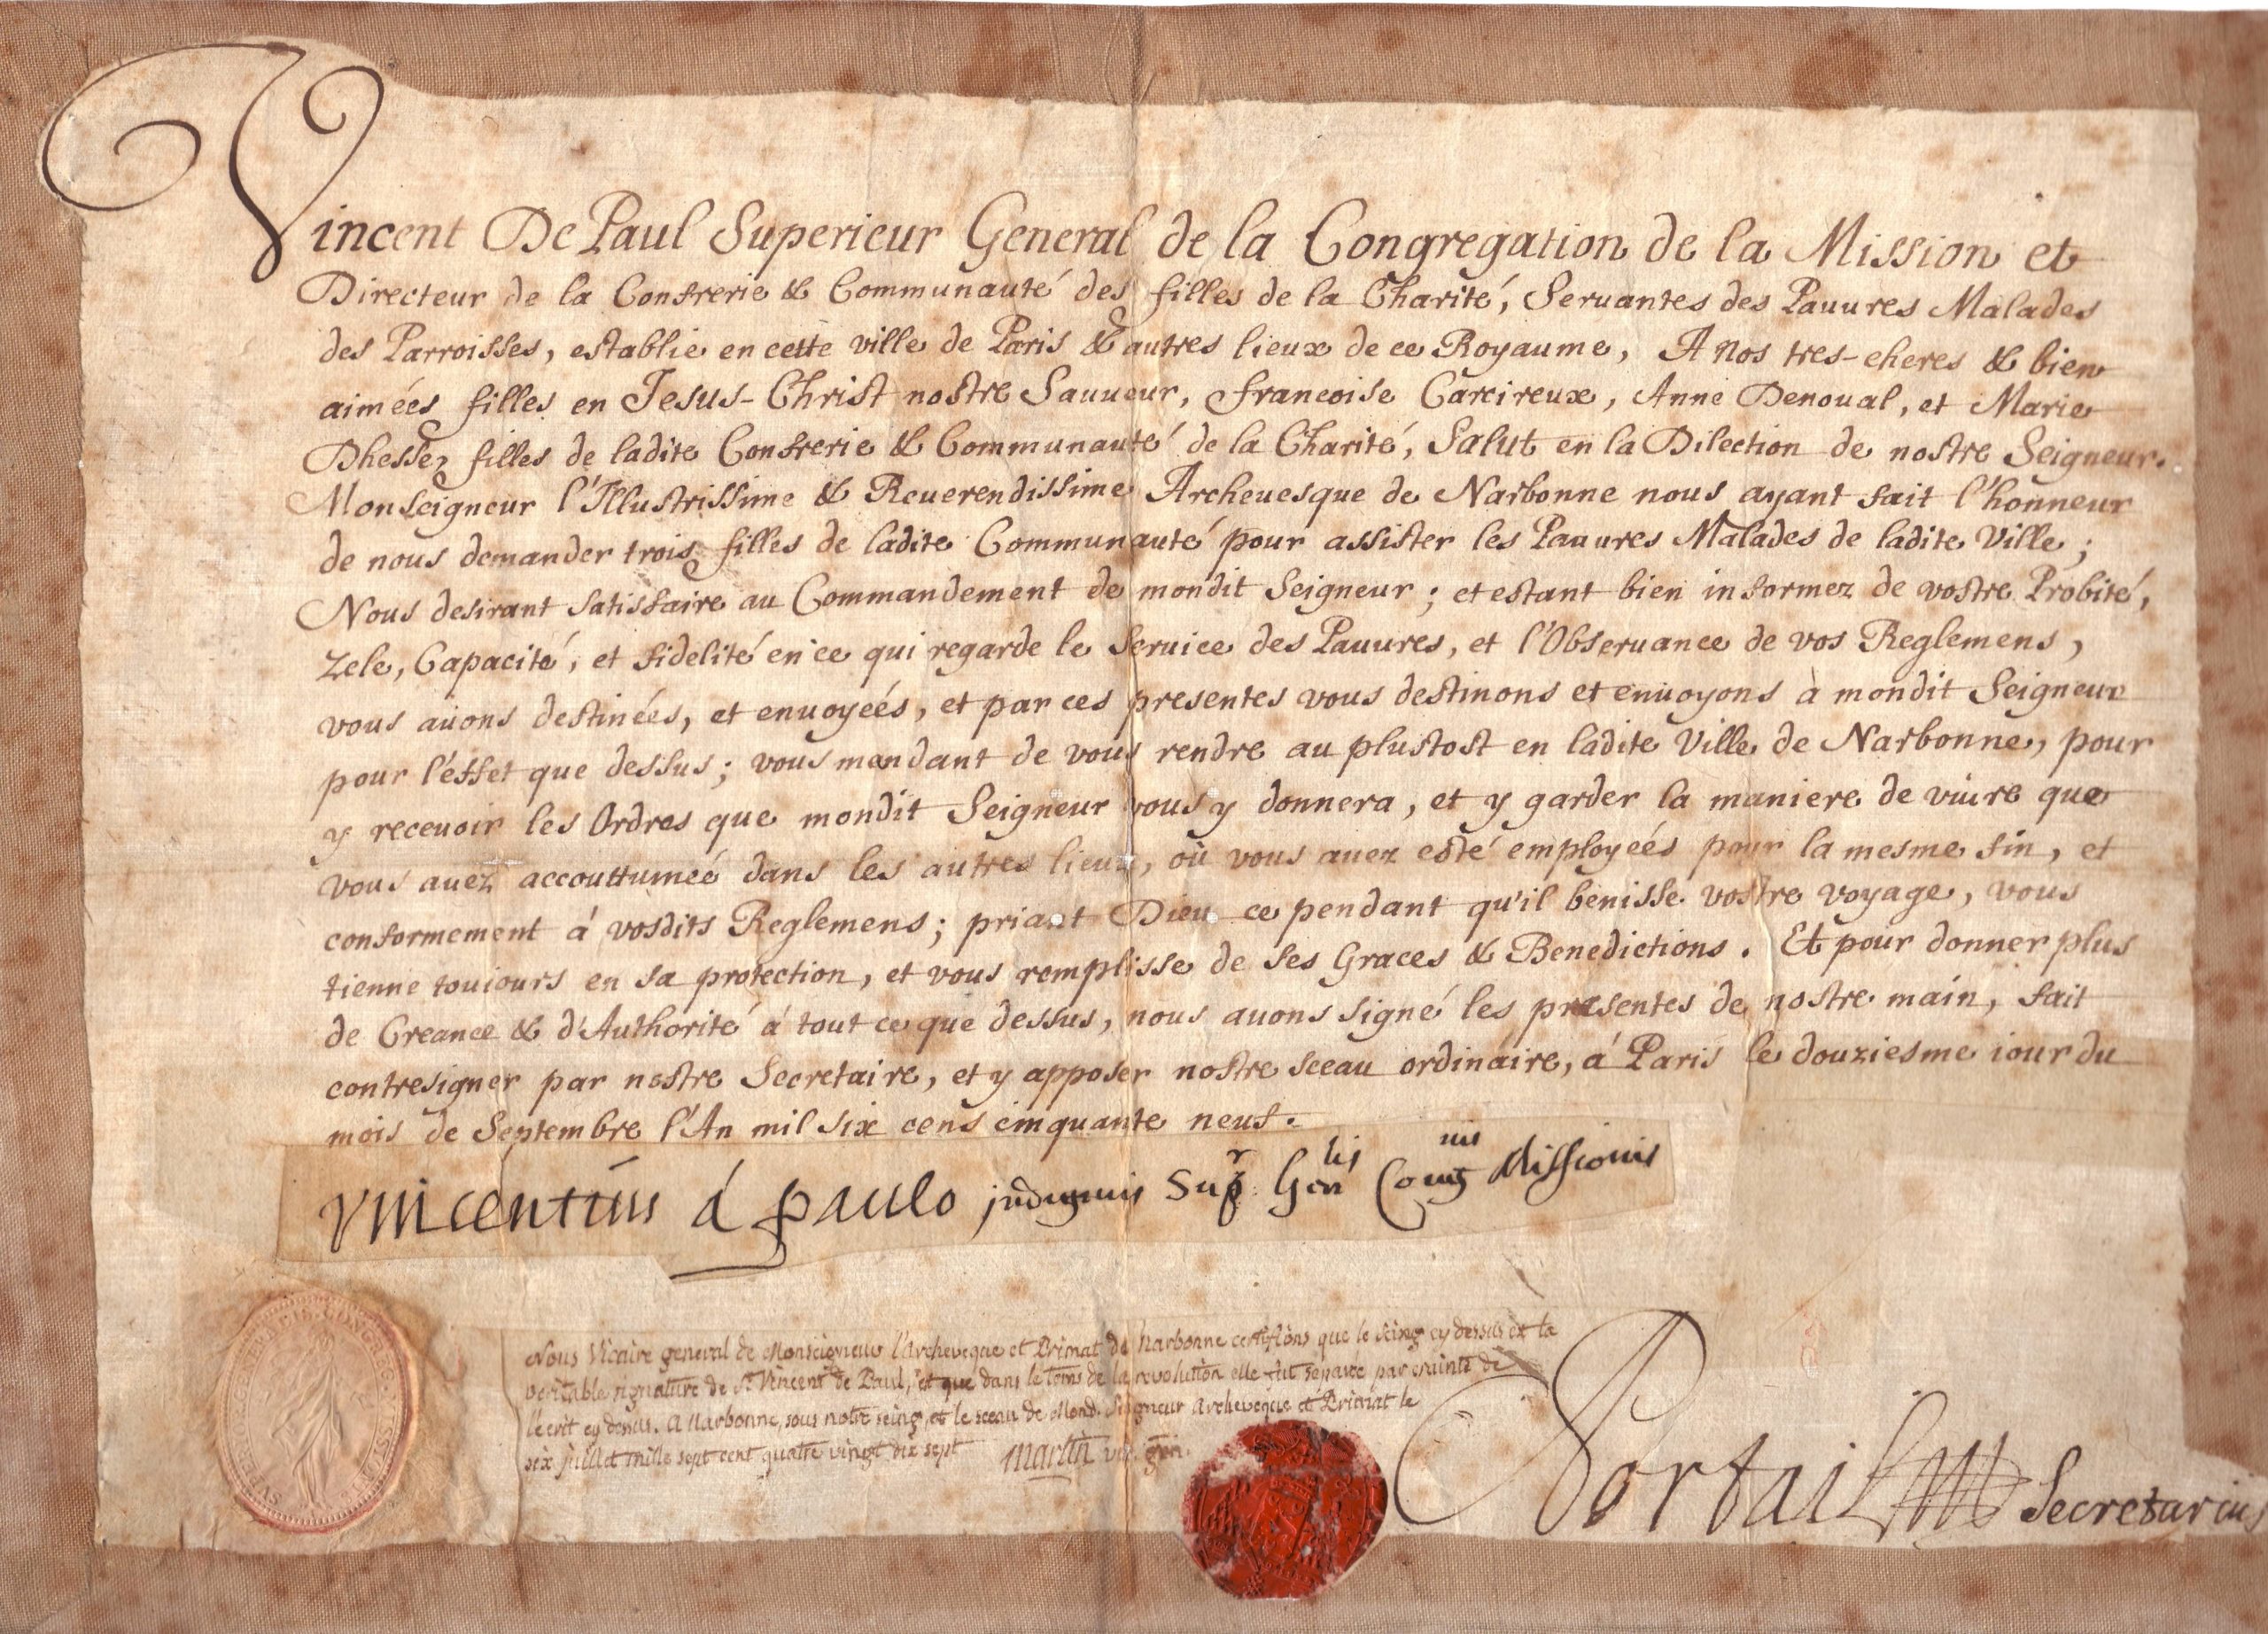 Vincent De Paul Superieur General de la Congregation de la Mission et
Directeur de la Confrerie & Communauté des filles de la Charité, Seruantes des Pauures Malades
des Parroisses, establie en cette ville de Paris & autres lieux de ce Royaume, A nos tres-cheres & bien
aimées filles en Jesus-Christ nostre Sauueur, francoise Carcireux, Anne Denoual, et Marie
Dhesse, filles de ladite Confrerie & Communauté de la Charité, Salut en la Dilection de nostre Seigneur.
Monseigneur l'Illustrissime & Reuerendissime Archeuesque de Narbonne nous ayant fait l'honneur
de nous demander trois filles de ladite Communauté pour assister les Pauures Malades de ladite Ville;
Nous desirant satisfaire au Commandement de mondit Seigneur; et estant bien informez de vostre Probité,
Zele, Capacité, et fidelité en ce qui regarde le Seruice des Pauures, et l'Obseruance de vos Reglemens,
vous auons destinées, et enuoyées, et par ces presentes vous destinons et enuoyons à mondit Seigneur
pour l'effet que dessus; vous mandant de vous rendre au plustost en ladite Ville de Narbonne, pour
y receuoir les Ordres que mondit Seigneur vous y donnera, et y garder la maniere de viure que
vous auez accouttumée dans les autres lieux, où vous auez esté employées pour la mesme fin, et
conformement à vosdits Reglemens; priant Dieu ce pendant qu'il benisse vostre voyage, vous
tienne touiours en sa protection, et vous remplisse de ses Graces & Benedictions. Et pour donner plus
de Creance & d'Authorité à tout ce que dessus, nous auons signé les presentes de nostre main, fait
contresigner par nostre Secretaire, et y apposer nostre sceau ordinaire, à Paris le douziesme iour du
mois de Septembre l'An mil six cens cinquante neuf.
Vincentius à Paulo indignus Supr Gnlis Congnis Missionis
Nous Vicaire general de Monseigneur l'archeveque et Primat de Narbonne certifions que le seing cy dessus est la
veritable signature de St Vincent de Paul, et que dans le tems de la revolution elle fut separée par crainte de
l'ecrit cy dessus. A Narbonne, sous notre seing, et le sceau de Mond. Seigneur archeveque et Primat le
six juillet mille sept cent quatre vingt dix sept Martin vic. gen.
Portail Secretarius